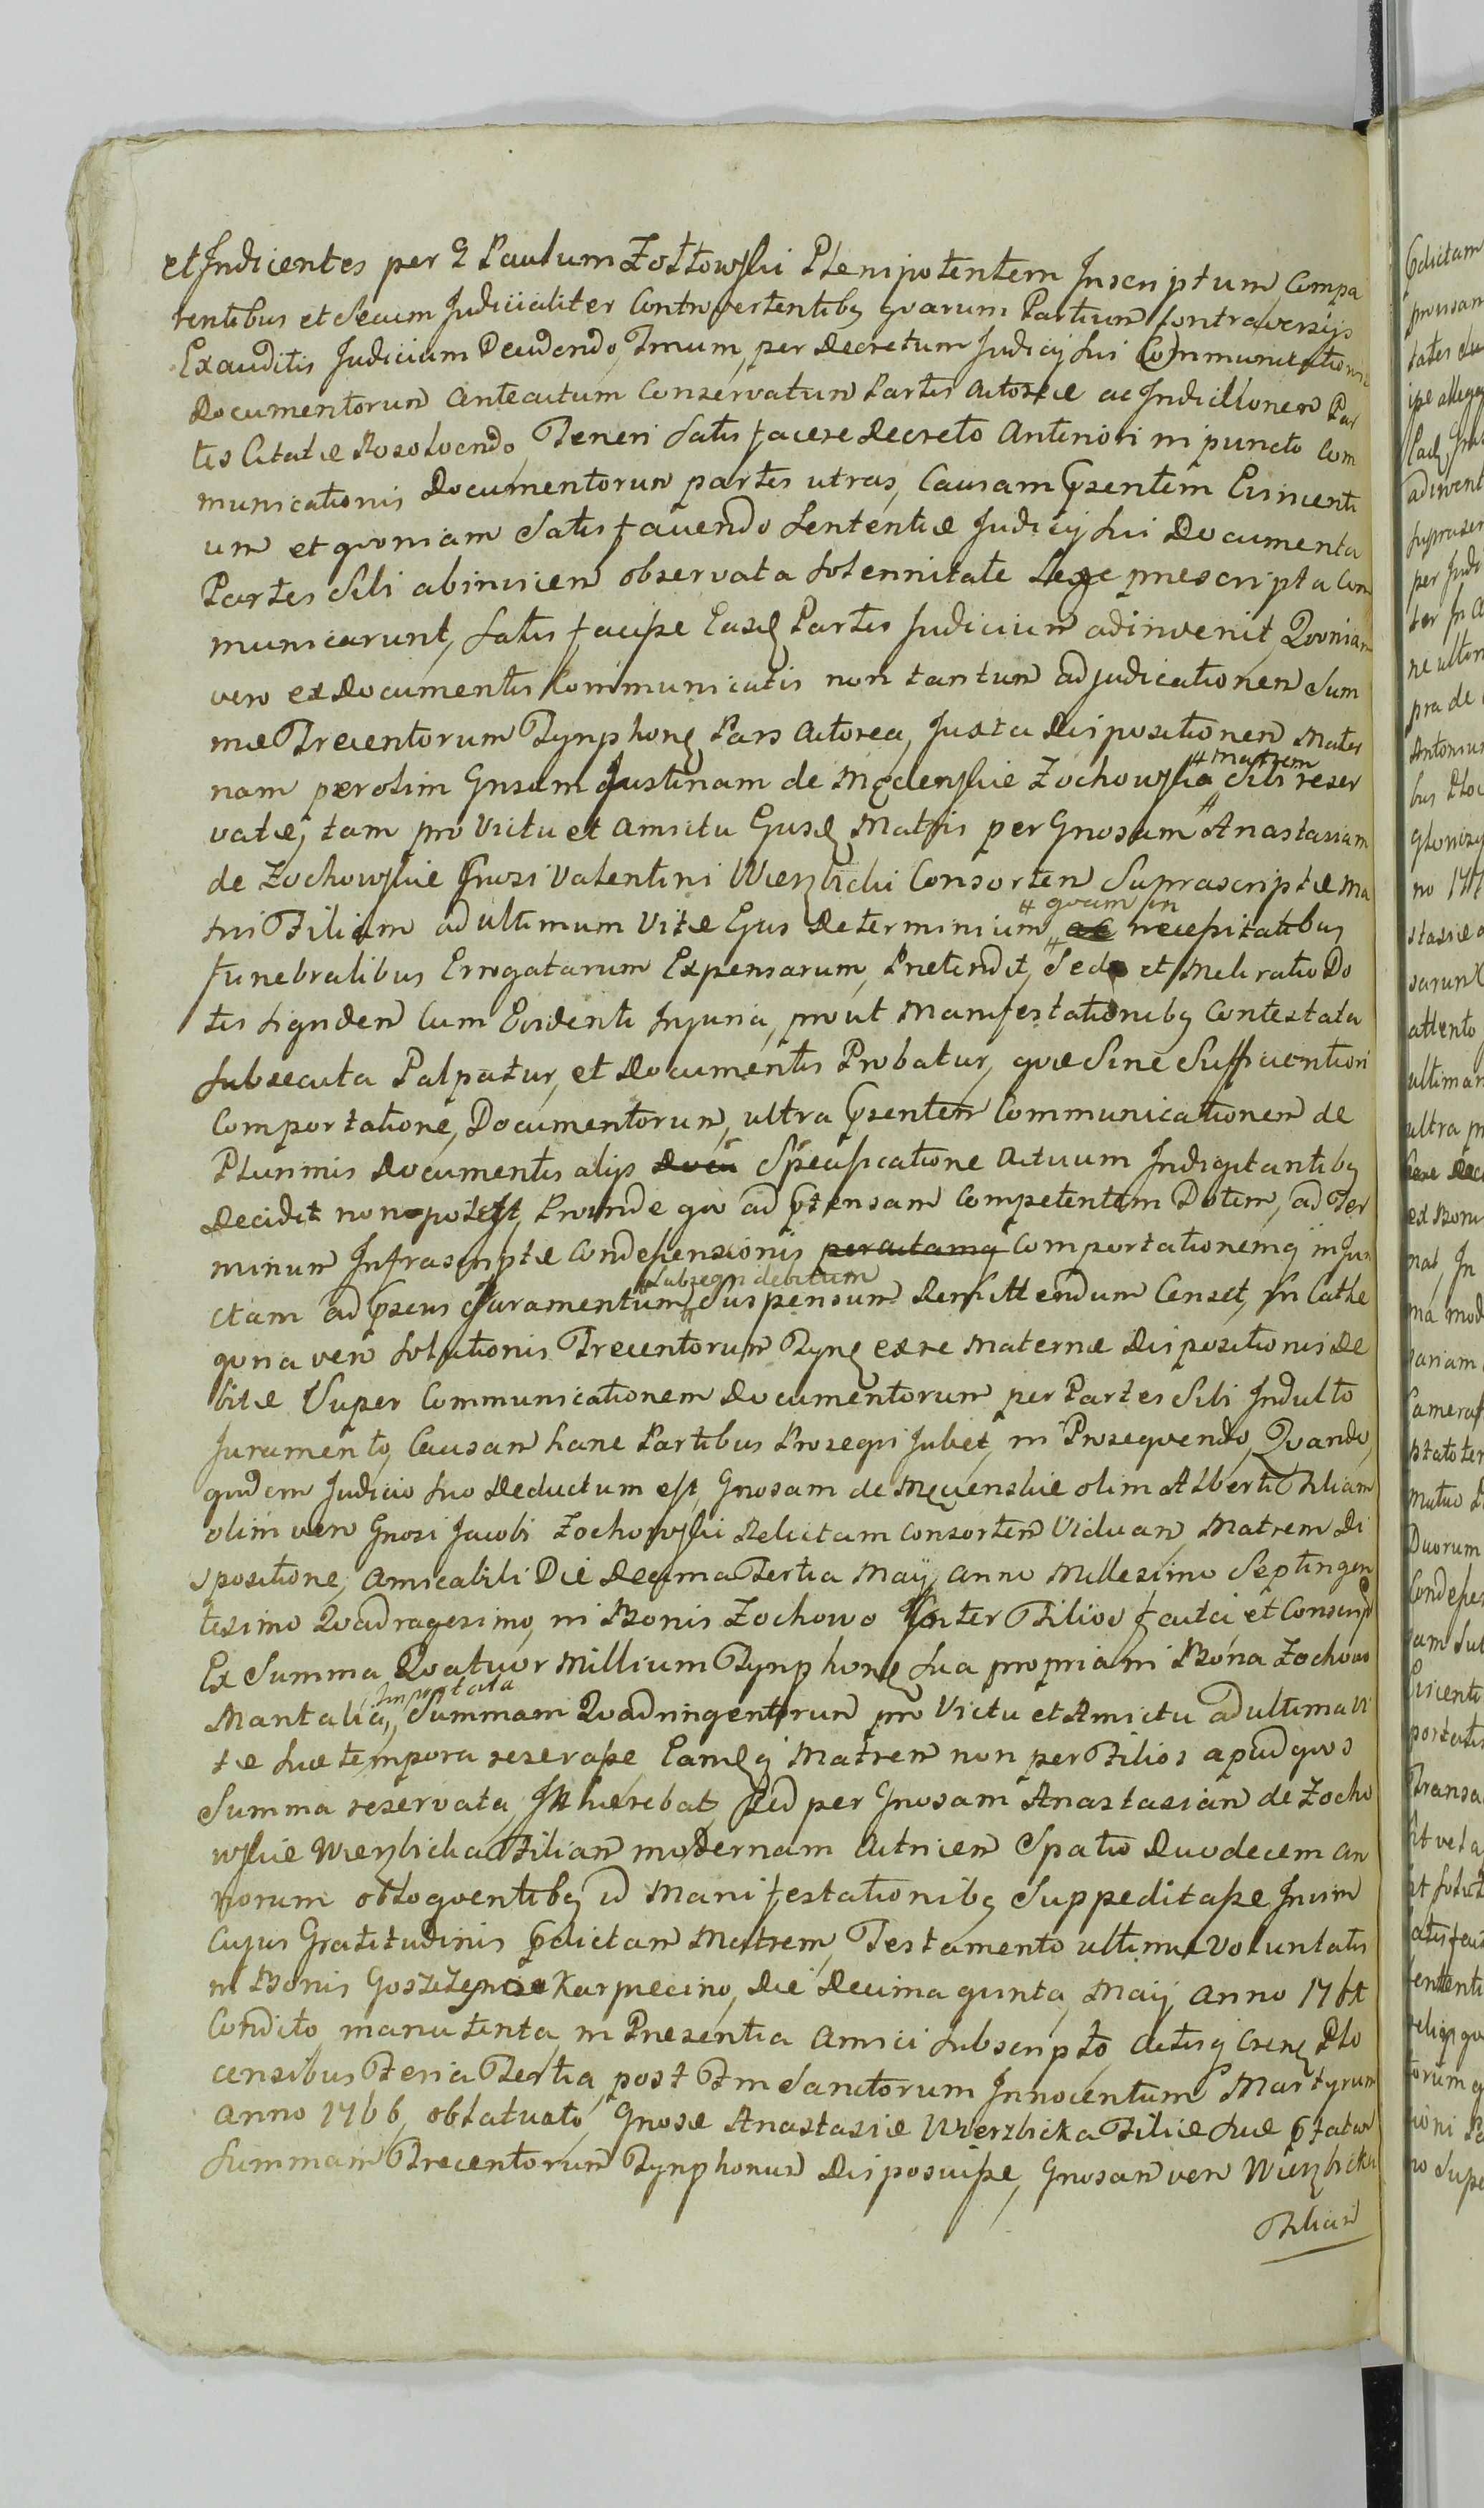 et Indicentes per G Paulum Zołtowski Plenipotentem Inscriptum, Compa
rentibus et Secum Judicialiter Controvertentibq quarum Partium Controversijs
Exauditis Judicium Decidendo, Imum, per Decretum Judicij Sui Communicationis
Documentorum anteactum Conservatum Partis Actoreæ ac Indicllonem Par
tis Citatæ Resolvendo, Teneri Satis facere Decreto Anteriori in puncto Com
municationis Documentorum partes utras, Causam Pzentem Evincenti
um et quoniam Satis faciendo Sententiæ Judicij Sui Documenta
Partes Sibi abinvicem observata Solennitate Lege præscripta Com
municarunt, Satis fecisse Easd Partes Judicium adinvenit, Quoniam
vero ex Documentis Communicatis non tantum adjudicationem Sum
mæ Trecentorum Tynphong Pars Actorea, Juxta Dispositionem Mater
nam per olim Gnsam Justinam de Mędenskie Żochowska # Matrem Sibi reser
vatæ, tam pro Victu et Amictu Ejusd Matris per Gnosam # Anastasiam
de Żochowskie Gnosi Valentini Wierzbicki Consortem Suprascriptæ Ma
tris Filiam ad ultimum Vitæ Ejus Determinium # quam in necessitatibus
funebralibus Errogatarum Expensarum, Prætendit, # Sed et Meli ratio Do
tis Signdem Cum Evidenti Injuria, prout Manifestationibq Contestata
Subsecuta Palpatur, et Documentis Probatur, quæ Sine Sufficientiori
Comportatione, Documentorum, ultra Pzentem Communicationem de
Plurimis Documentis alijs Docu Specificatione Actuum Indigitantibq
Decidit non potest, Proinde quo ad Ptensam Competentem Dotem, ad Ter
minum Infrascriptæ Condescensionis peractamq Comportationemq injun
ctam ad Pzens Juramentum Subsequi debitum Suspensum Remittendum Censet, In Cathe
goria vero Solutionis Trecentorum Tyng ex re Maternæ Dispositionis De
bitæ Super Communicationem Documentorum per Partes Sibi Indulto
Juramento, Causam hanc Partibus Prosequi Jubet, in Prosequendo, Quando,
quidem Judicio Suo Deductum est, Gnosam de Męcienskie olim Alberti Filiam
olim vero Gnosi Jacobi Żochowski Relictam Consortem Viduam, Matrem Di
spositione, Amicabili Die Decima Tertia Maij Anno Millesimo Septingen
tesimo Quadragesimo, in Bonis Żochowo Inter Filios facta, et Conscrip
Ex Summa Quatuor Millium Tynphong Sua propria in Bona Żochowo
Maritalia Importata, Summam Quadringentorum pro Victu et Amictu ad ultima vi
tæ Suæ tempora reservasse Eamdq Matrem non per Filios apud quos
Summa reservata, Inhærebat, Sed per Gnosam Anastasiam de Żocho
wskie Wierzbicka Filiam modernam Actricem Spatio Duodecem An
norum obloquentibq id Manifestationibq Suppeditasse In vim
Cujus Gratitudinis Pdictam Matrem, Testamento ultimæ Voluntatis
in Bonis Goszczynose Karpiecino, Die Decima quinta, Maij, Anno 1764
Condito, manutenta, in Præsentia Amici Subscripto, Actisq Creng Plo
censibus Feria Tertia, post Fm Sanctorum Innocentum Martyrum
Anno 1766, oblatuato, Gnosæ Anastasiæ Wierzbicka Filiæ Suæ Pfatæ
Summam Trecentorum Tynphonum Disposuisse, Gnosam vero Wierzbicka
Filiam